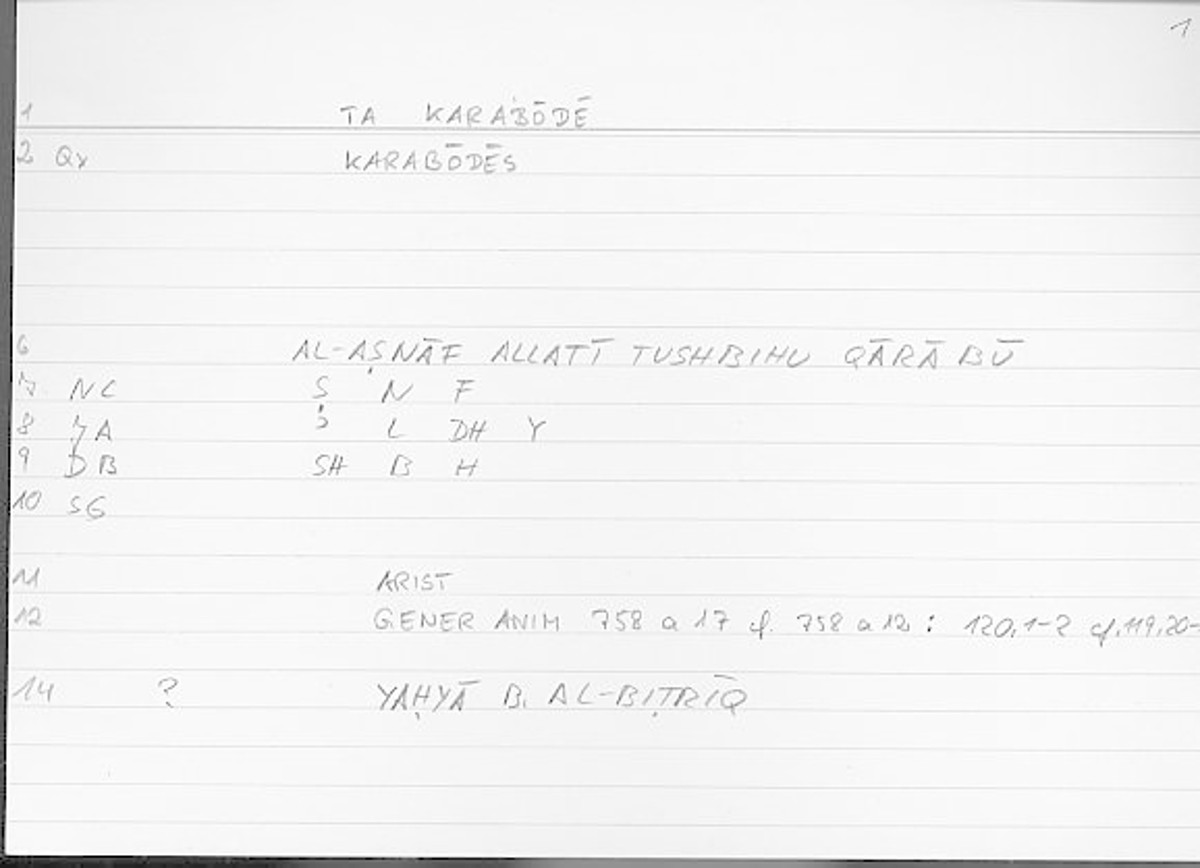 1
1 TA KARABŌDĒ
2 Qx KARABŌDĒS
6 AL-AṢNĀF ALLATĪ TUSHBIHU QĀRĀBŪ
7 NC Ṣ N F
8 JA ʾ L DH Y
9 DB SH B H
10 SG
11 ARIST
12 GENER ANIM 758 a 17 cf. 758 a 12 : 120,1-2 cf. 119,20-
14 ? YAḤYĀ B. AL-BIṬRĪQ